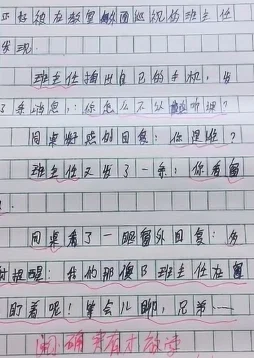 正好被在教室外面巡视的班主任
发现.
班主任掏出自己的手机, 发
了条消息: 你怎么不认真听课?
同桌好恐的回复: 你是谁?
班主任又发了一条: 你看窗
.
同桌看了一眼窗外回复: 多
谢提醒: 我的那像B班主任在窗
盯着呢! 等会儿聊, 兄弟…